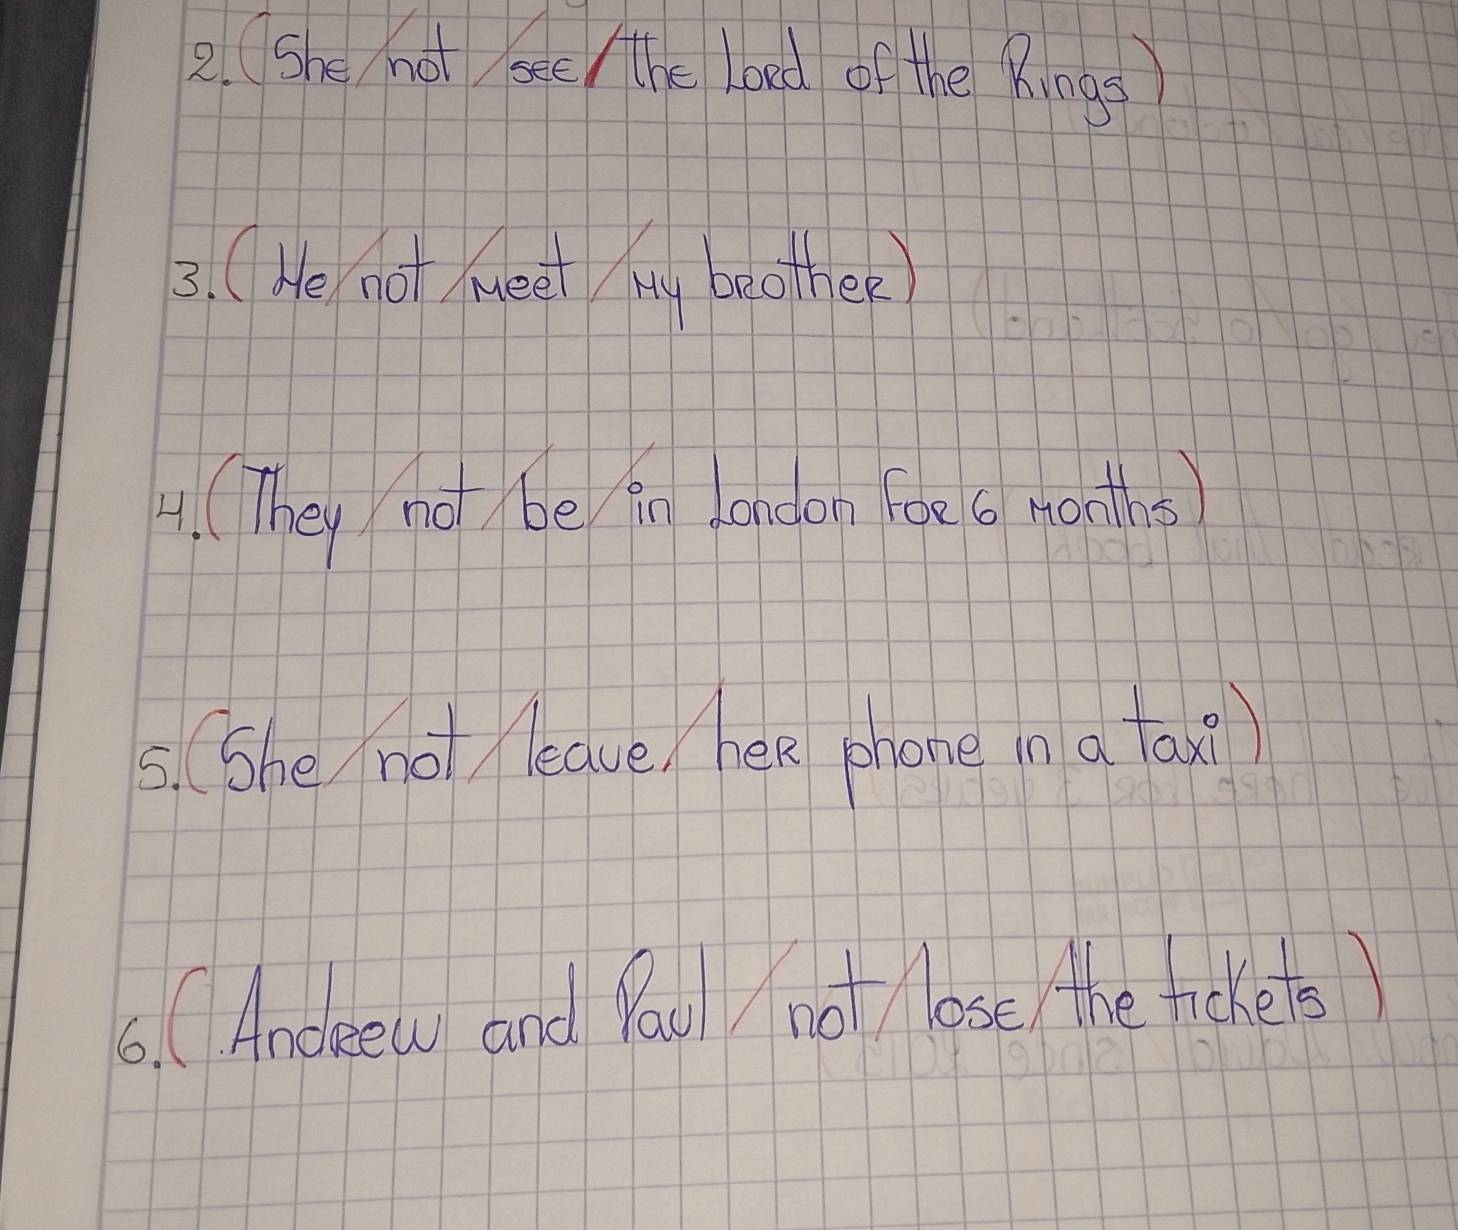 2. (She/not/see/the Lord of the Rings)
3. (He/not/meet/my brother)
4. (They/not/be/in London for 6 months)
5. (She/not/leave/her phone in a taxi)
6. (Andrew and Paul/not/lose/the tickets)